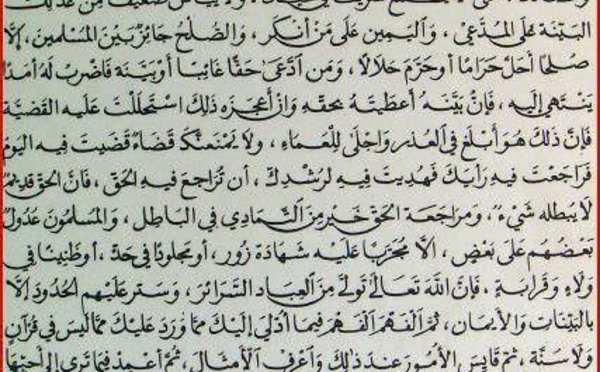 ولا ييأس ضعيف من عدلك
البَيِّنَة عَلَى المُدَّعِي ، وَاليَمِين عَلَى مَن أَنكَر ، وَالصُّلحُ جَائِزٌ بَيْنَ المُسْلِمين ، إِلَّا
صُلحًا أَحَلَّ حَرَامًا أَوحَرَّمَ حَلَالًا ، وَمَن ادَّعَى حَقًّا غَائِبًا أَوبَيِّنَة فَاضْرِبْ لَهُ أَمَدًا
يَنْتَهِي إِلَيه ، فَإِنْ بَيَّنَهُ أَعطَيتَهُ بِحَقِّهِ وَإِنْ أَعجَزَه ذَلِكَ اسْتَحلَلْتَ عَلَيه القَضِيَّة
فَإِنَّ ذَلِكَ هُوَ أَبْلَغ فِي العُذر وَاجْلَى لِلعَمَاء ، وَلَا يَمنَعَنَّكَ قَضَاءٌ قَضَيتَ فِيه اليَوم
فَرَاجَعْتَ فِيهِ رَأيَكَ فَهُدِيتَ فِيهِ لِرُشْدِكَ ، أَن تُرَاجعَ فِيهِ الحَق ، فَانَّ الحَقَّ قَدِيمٌ
لَا يُبطِله شَيْءٌ ، وَمُرَاجَعَة الحَقّ خَيرٌ مِنَ التَّمَادِي فِي البَاطِل ، وَالمُسلِمُونَ عَدُولٌ
بَعْضُهُم عَلَى بَعْضٍ ، الَّا مُجَرَّبًا عَلَيهِ شَهَادَة زُورٍ ، أَو مَجلودًا فِي حَدّ ، أَو ظَنِينًا فِي
وَلَاءٍ وَقَرَابَةٍ ، فَانَّ اللهَ تَعَالَى تَوَلَّى مِنَ العِبَادِ السَّرَائِرَ ، وَسَتَرَ عَلَيهِم الحُدُودَ الَّا
بِالبَيِّنَات وَالأَيمَان ، ثُمَّ الفَهْمَ الفَهْمَ فِيمَا أُدْلِيَ إِلَيكَ مِمَّا وَرَدَ عَلَيكَ مِمَّا لَيسَ فِي قُرآنٍ
وَلَا سُنَّة ، ثُمَّ قَايِس الأُمُورَ عِندَ ذَلِكَ وَاعْرِف الأَمْثَال ، ثُمَّ اعْمِدْ فِيمَا تَرَى إِلَى أَحَبِّهَا